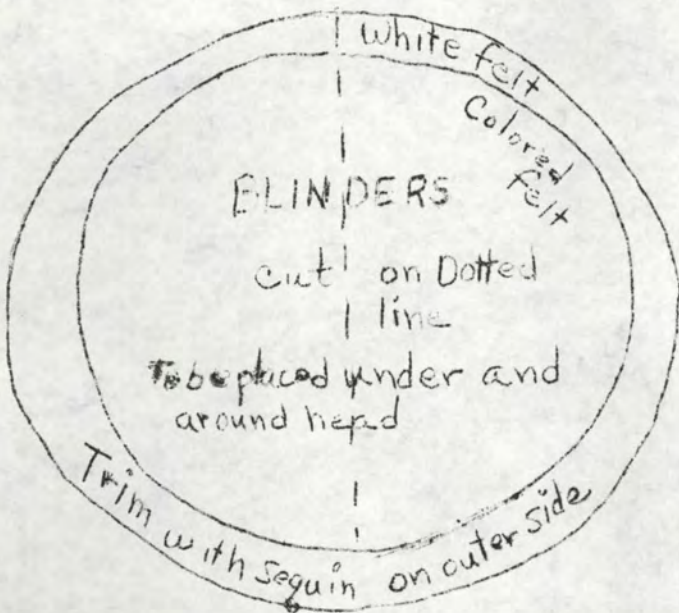 White felt
Colored
felt
BLINDERS
cut on Dotted
line
To be placed under and
around head
Trim with sequin on outer side